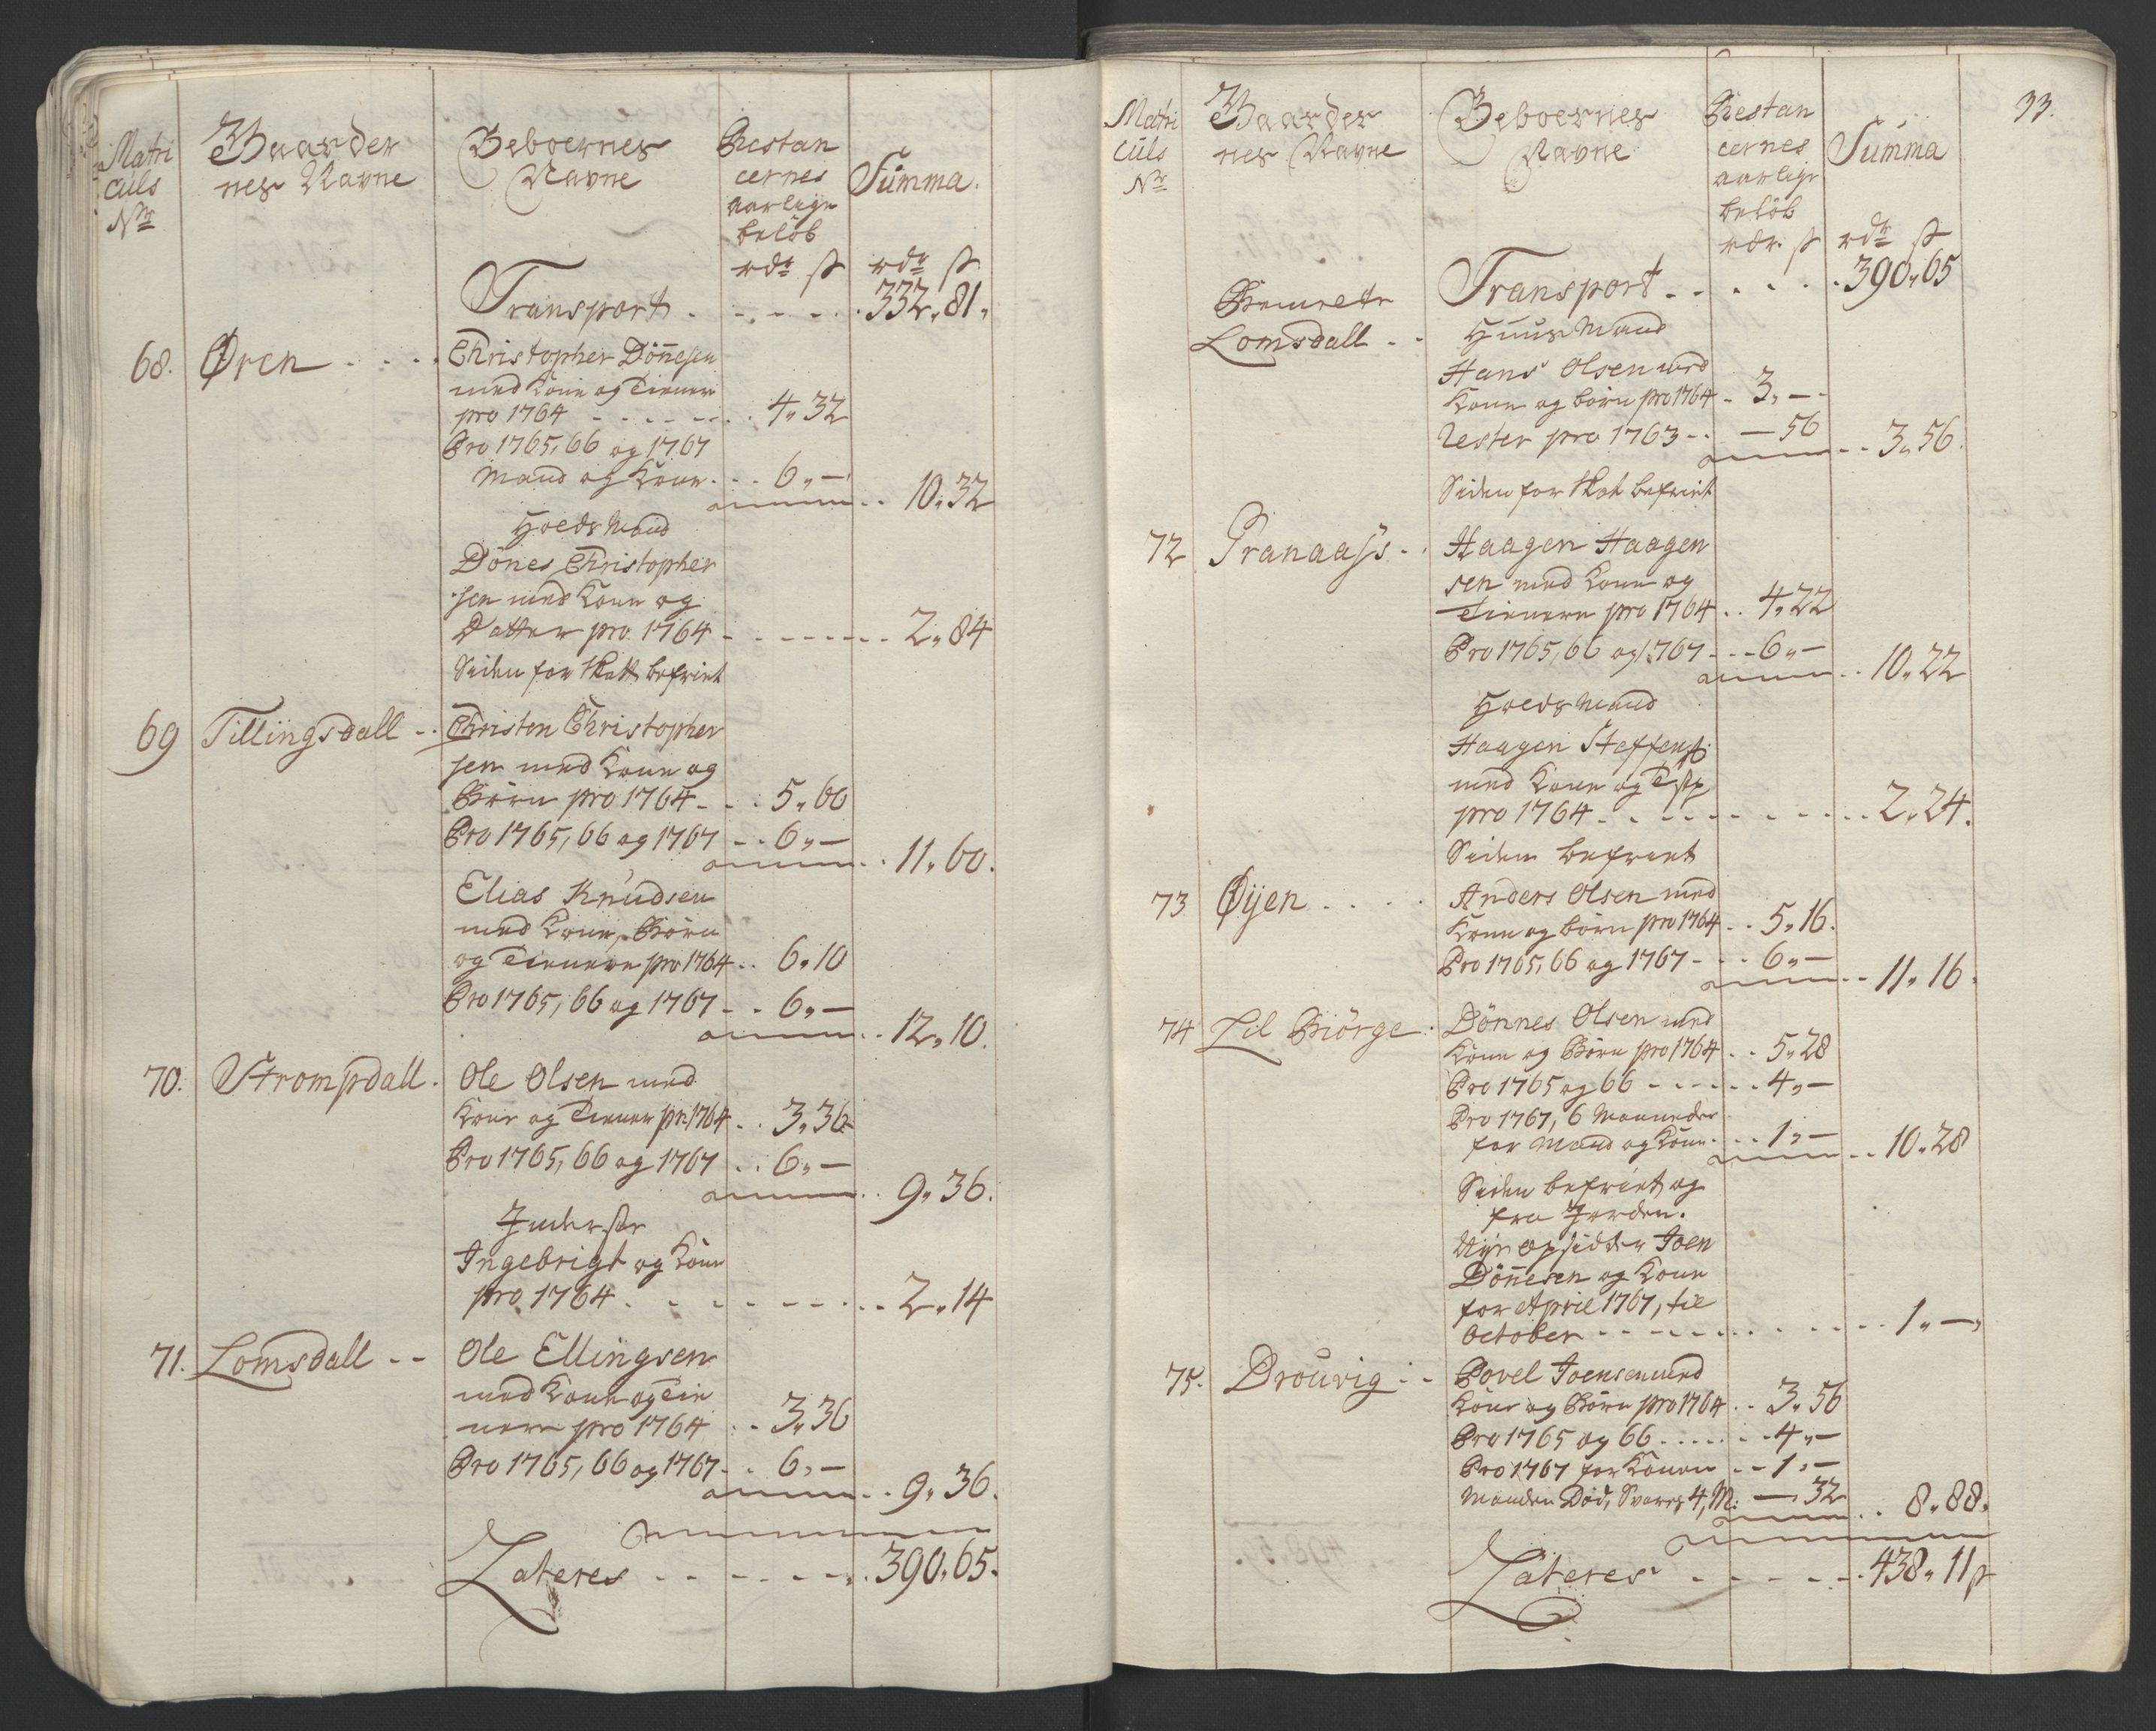 Matri
culs
Nr
Gaarder
nes Navne
Beboernes
Navne
Restan
cernes
aarlige
beløb
rdr ß
Summa.
rdr ß
Transport . - . - - . . 332„81„
68. Øren - - - . Christopher Dönnesen
med Kone og Tiener
pro 1764 - - - - - - . . 4„32
Pro 1765, 66 og 1767
Mand og Kone . . . 6„—
. . 10„32
Hoeds Mand
Dönes Christopher
sen med Kone og
Datter pro 1764 - - - - - - - . . 2„84
Siden for Skatt befriet
69 Tillingsdall - . Christen Christopher
sen med Kone og
Börn pro 1764 - . . 5„60
Pro 1765, 66 og 1767 - . . 6„—
. . 11„60.
Elias Knudsen
med Kone, Börn
og Tienere pro 1764 . . 6„10
Pro 1765, 66 og 1767 - . . 6„—
. . 12„10.
70. Strompdall . Ole Olsen med
Kone og Tiener pr: 1764 . . 3„36
Pro 1765, 66 og 1767 . . 6„—
. . 9„36.
Inderste
Ingebrigt og Kone
pro 1764 . - - - - - - - . . 2„14
71. Lomsdall - - Ole Ellingsen
med Kone og Tie
nere pro 1764 . . 3„36
Pro 1765, 66 og 1767 - . 6„—
. . 9„36.
Lateres - - - - - - . 390„65.
33.
Matri
culs
Nr
Gaarder
nes Navne
Beboernes
Navne
Restan
cernes
aarlige
beløb
rdr. ß
Summa
rdr ß
Transport . . . . . . . 390„65
Bemeldte
Lomsdall - - Huus Mand
Hans Olsen med
Kone og börn pro 1764 - 3„—
Rester pro 1763 - - — 56
. . 3„56.
Siden for Skat befriet
72 Granaass - . Haagen Haagen
sen med Kone og
Tienere pro 1764 . . 4„22
Pro 1765, 66 og 1767 - - - 6„—
. . 10„22
Hoeds Mand
Haagen Steffens:
med Kone og
pro 1764 - . - - - - - . . . 2„24.
Siden befriet
73 Øyen . . . . Anders Olsen med
Kone og börn pro 1764 . . 5„16.
Pro 1765, 66 og 1767 - . . 6„—
. . 11„16.
74 Lil Biörge . Dönnes Olsen med
Kone og Börn pro 1764 . . 5„28
Pro 1765 og 66 - - - - - . 4„—
Pro 1767, 6 Maaneder
for Mand og Kone . . . 1„—
. . 10„28
Siden befriet og
fra Jorden.
Nye opsidder Joen
Dönnesen og Kone
for April 1767, til
October - - - - - - . - - - . . 1„—„
75. Drouvig - - Povel Joensen med
Kone og Börn pro 1764 . . 3„56
Pro 1765 og 66 . . . . - . 4„—
Pro 1767 for Konen - - 1„—
Manden Död, Svares 4, M: — 32
. . 8„88.
Lateres . - - - - . 438„11ß